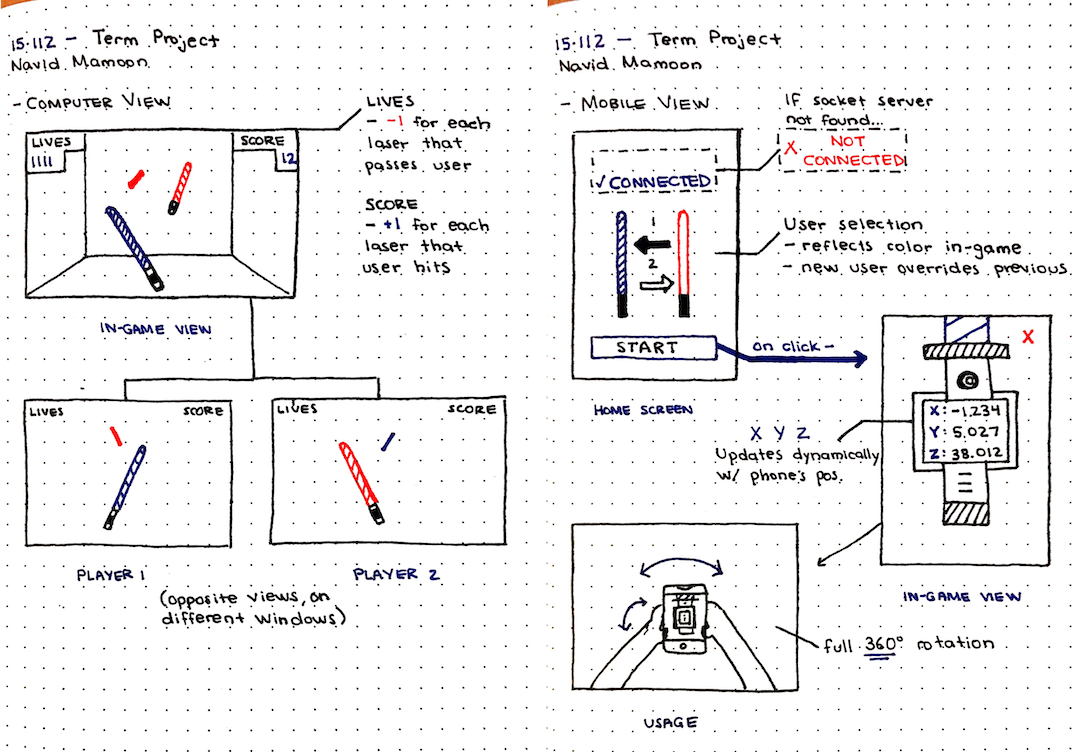 15-112 - Term Project
Navid Mamoon
- COMPUTER VIEW
LIVES
1111
SCORE
12
LIVES
- -1 for each
laser that
passes user
SCORE
- +1 for each
laser that
user hits
IN-GAME VIEW
LIVES
SCORE
LIVES
SCORE
PLAYER 1
PLAYER 2
(opposite views, on
different windows)
15-112 - Term Project
Navid Mamoon
- MOBILE VIEW
IF socket server
not found...
X NOT
CONNECTED
✓ CONNECTED
1
2
User selection
- reflects color in-game
- new user overrides previous.
START
on click -
HOME SCREEN
X
X: -1.234
Y: 5.027
Z: 38.012
X Y Z
Updates dynamically
w/ phone's pos.
IN-GAME VIEW
full 360° rotation
USAGE